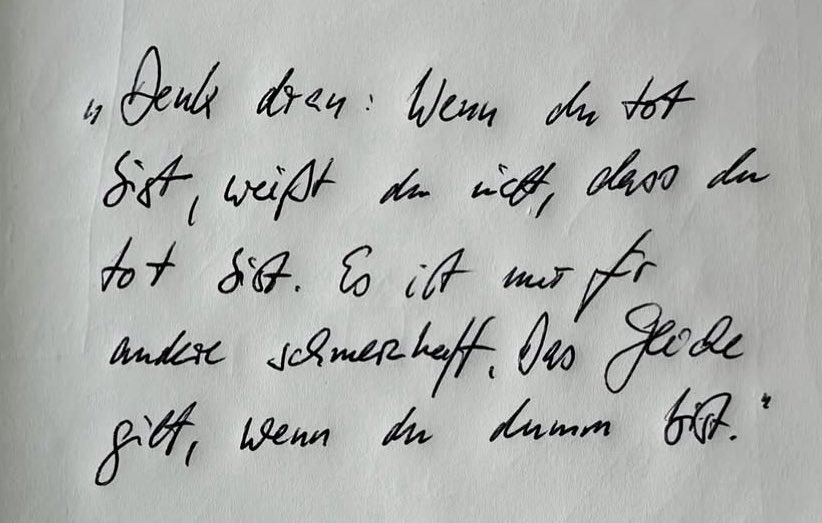 „Denk dran: Wenn du tot
bist, weißt du nicht, dass du
tot bist. Es ist nur für
andere schmerzhaft. Das Gleiche
gilt, wenn du dumm bist."